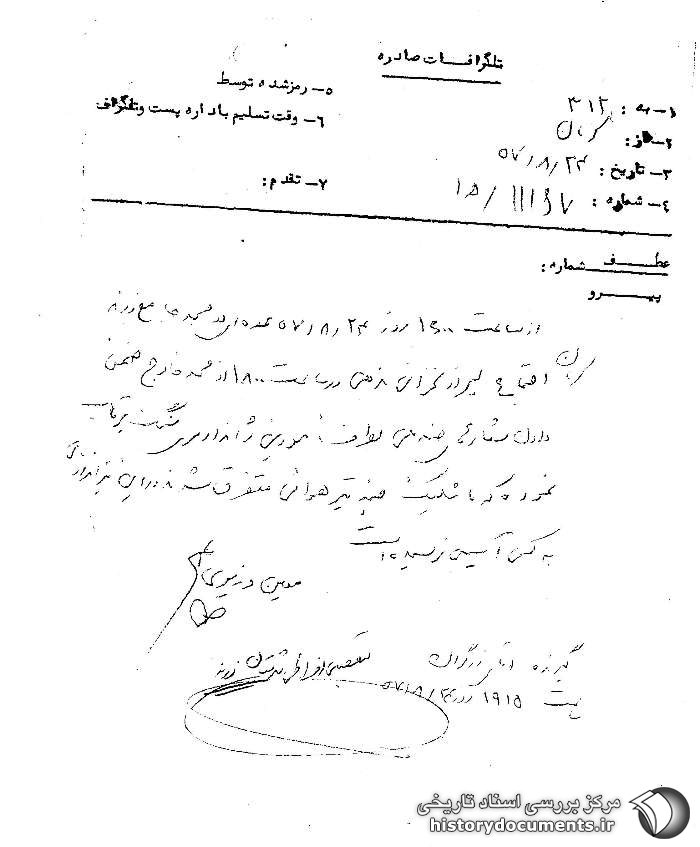 تلگرافات صادره
۱- به : ۳۱۲
۲- از: کرمان
۳- تاریخ : ۵۷/۸/۲۴
۴- شماره :
۵- رمز شده توسط
۶- وقت تسلیم باداره پست وتلگراف
۷- تقدم :
عطف
شماره :
پیرو
از ساعت ۱۶۰۰ روز ۵۷/۸/۲۴ عده‌ای در مسجد جامع زرند
کرمان اجتماع پس از سخنرانی مذهبی در ساعت ۱۸۰۰ از مسجد خارج ضمن
دادن شعارهای ضد ملی بطرف مامورین ژاندارمری سنگ پرتاب
نموده که با شلیک چند تیر هوائی متفرق شدند در این تیراندازی
به کسی آسیبی نرسیده است
گیرنده
ساعت ۱۹۱۵ روز ۵۷/۸/۲۴
مرکز بررسی اسناد تاریخی
historydocuments.ir